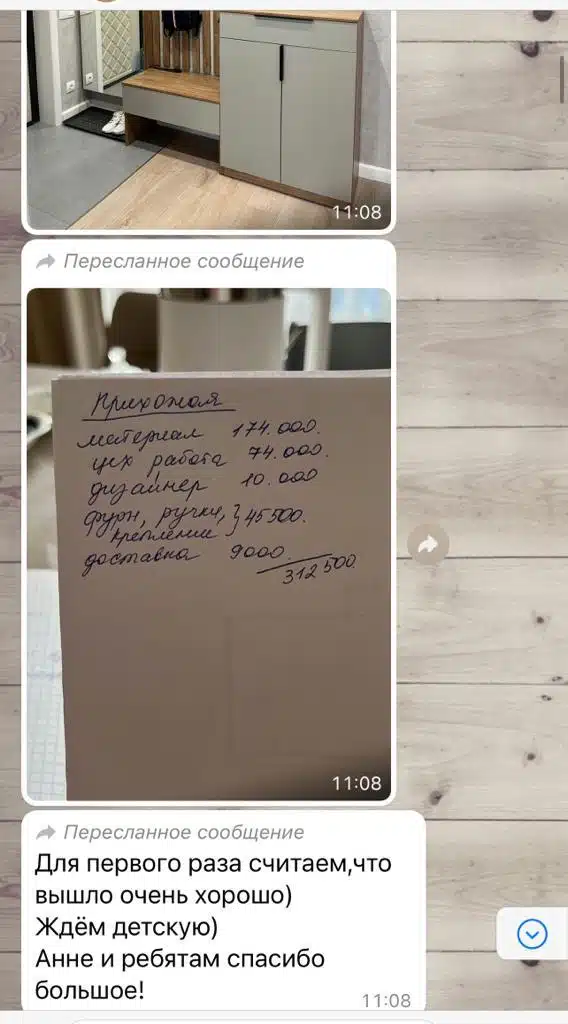 11:08
Пересланное сообщение
Прихожая
материал 174.000.
цех работа 74.000.
дизайнер 10.000
фурн, ручки, } 45500.
крепление
доставка 9000
312 500.
11:08
Пересланное сообщение
Для первого раза считаем,что
вышло очень хорошо)
Ждём детскую)
Анне и ребятам спасибо
большое!
11:08